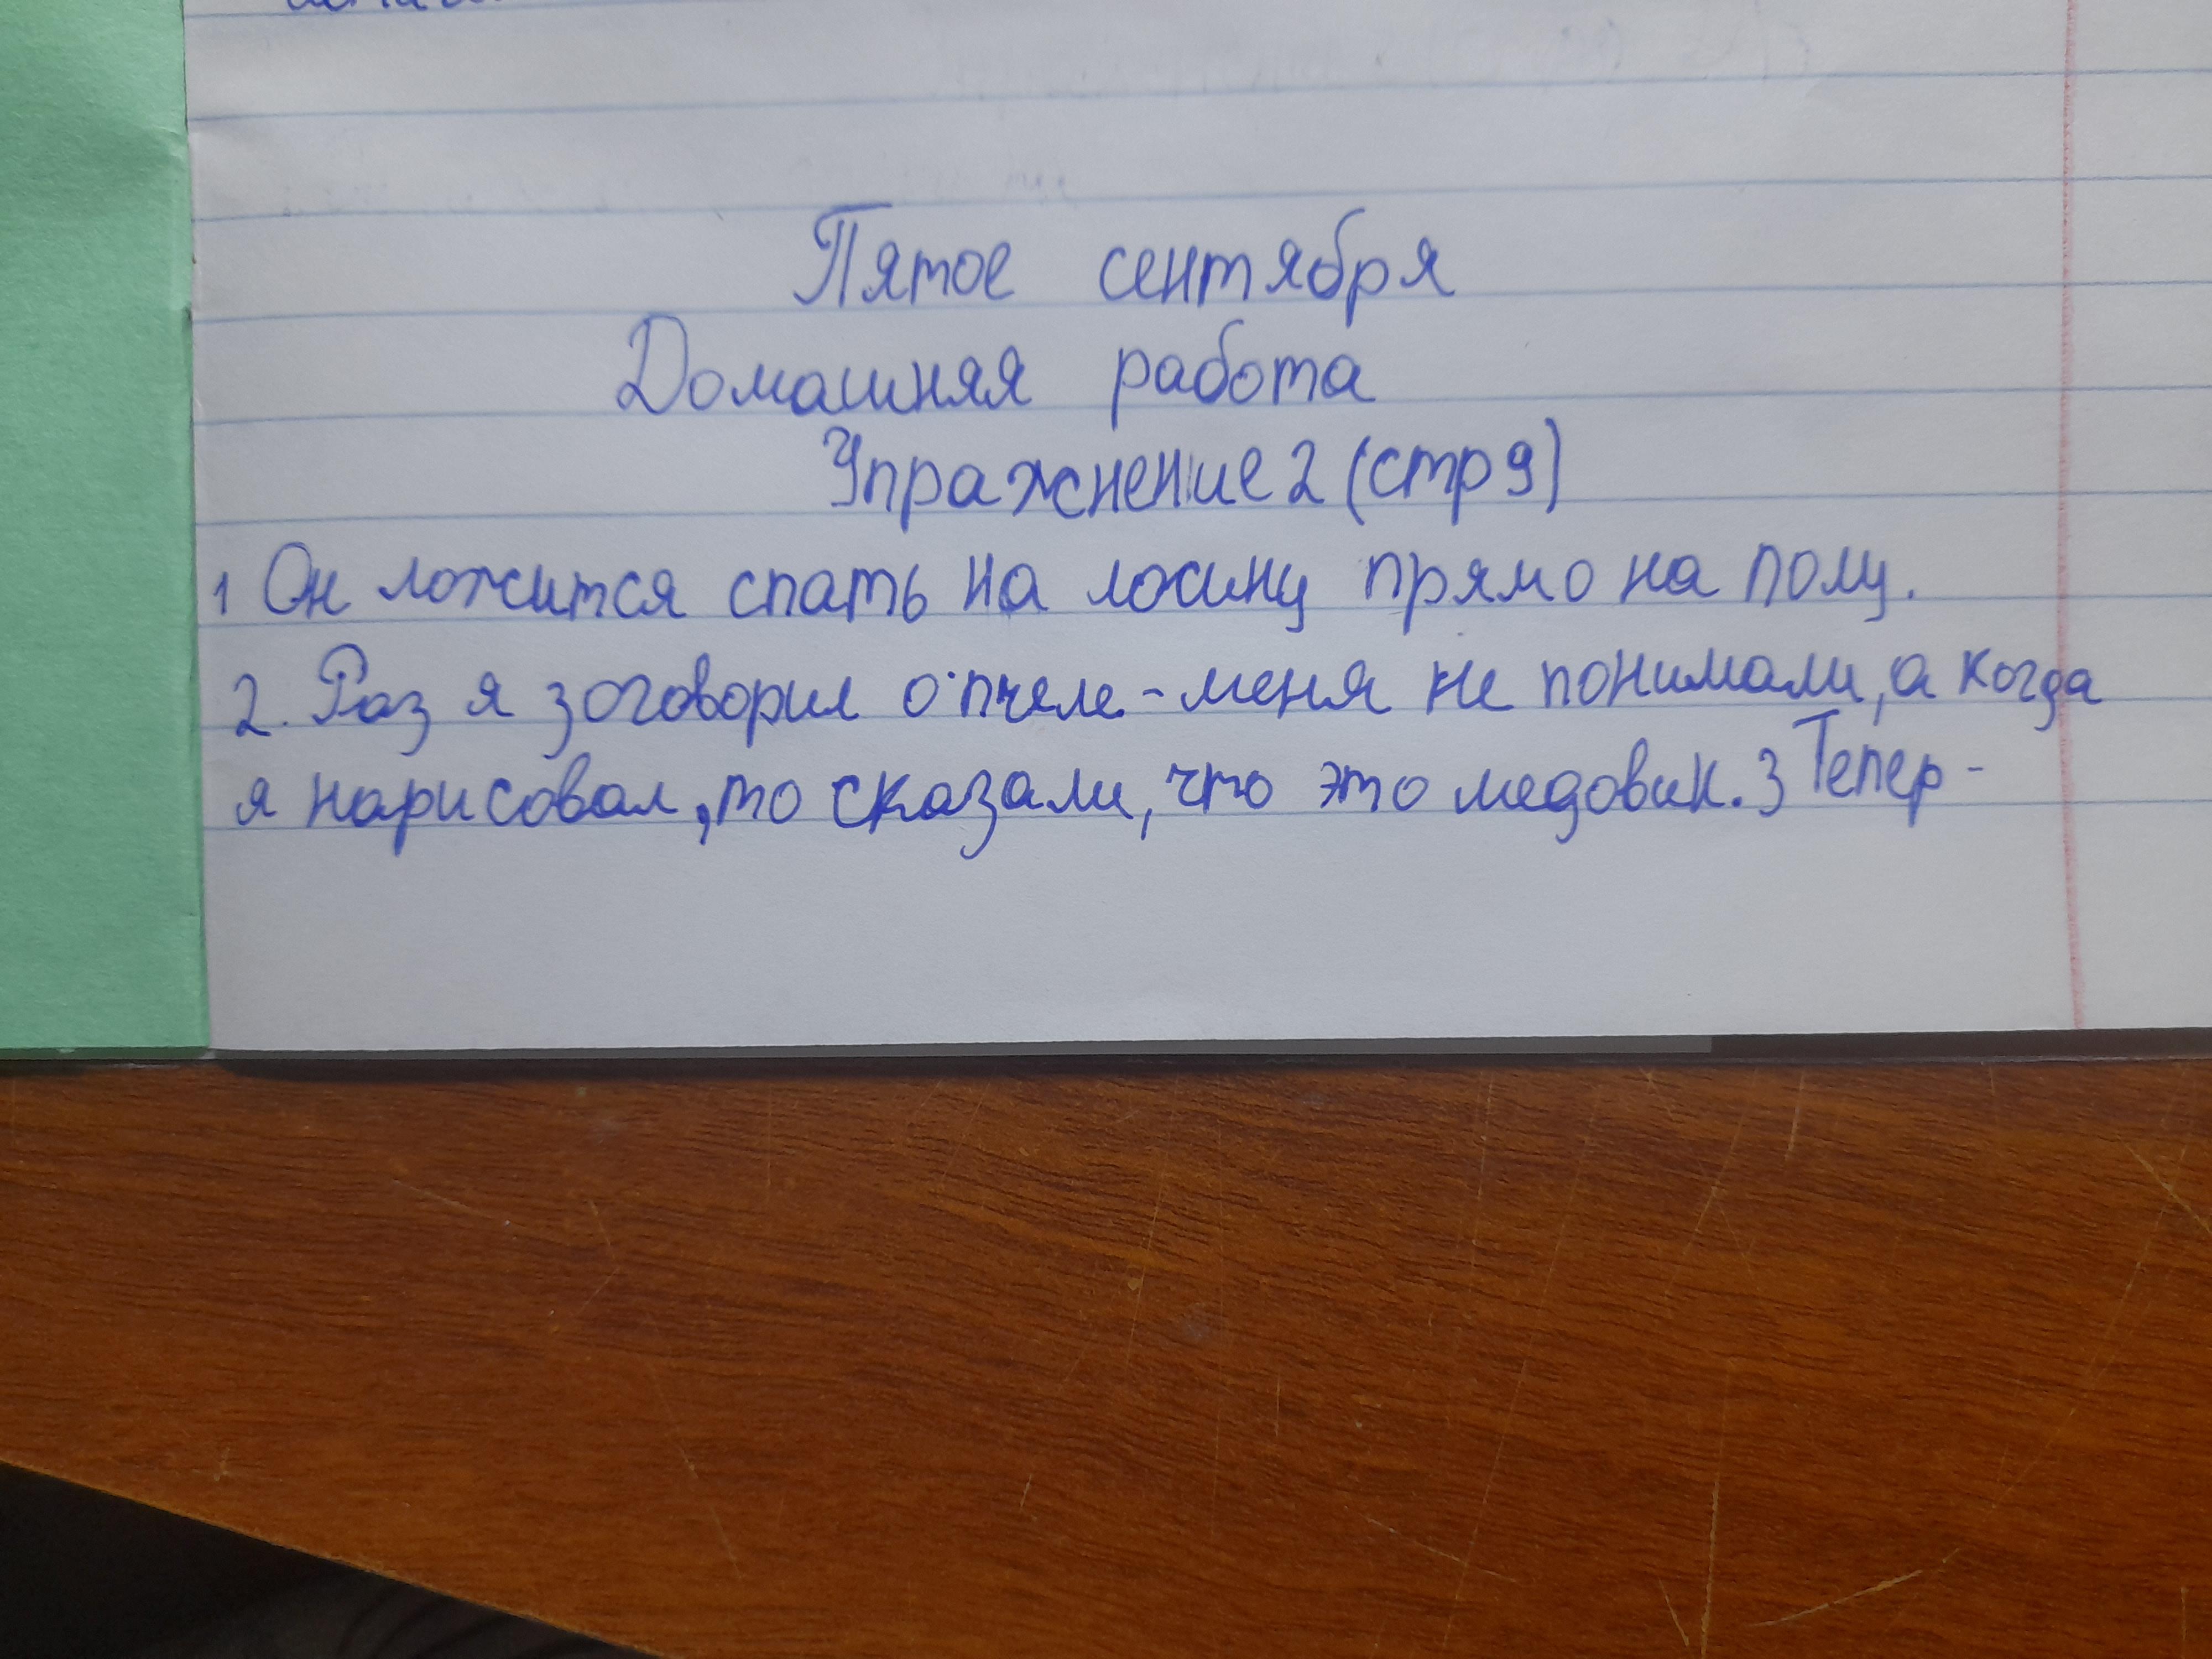 Пятое сентября
Домашняя работа
Упражнение 2 (стр 9)
1 Он ложится спать на лосину прямо на полу.
2. Раз я зоговорил о пчеле - меня не понимали, а когда
я нарисовал, то сказали, что это медовик. 3 Тепер-